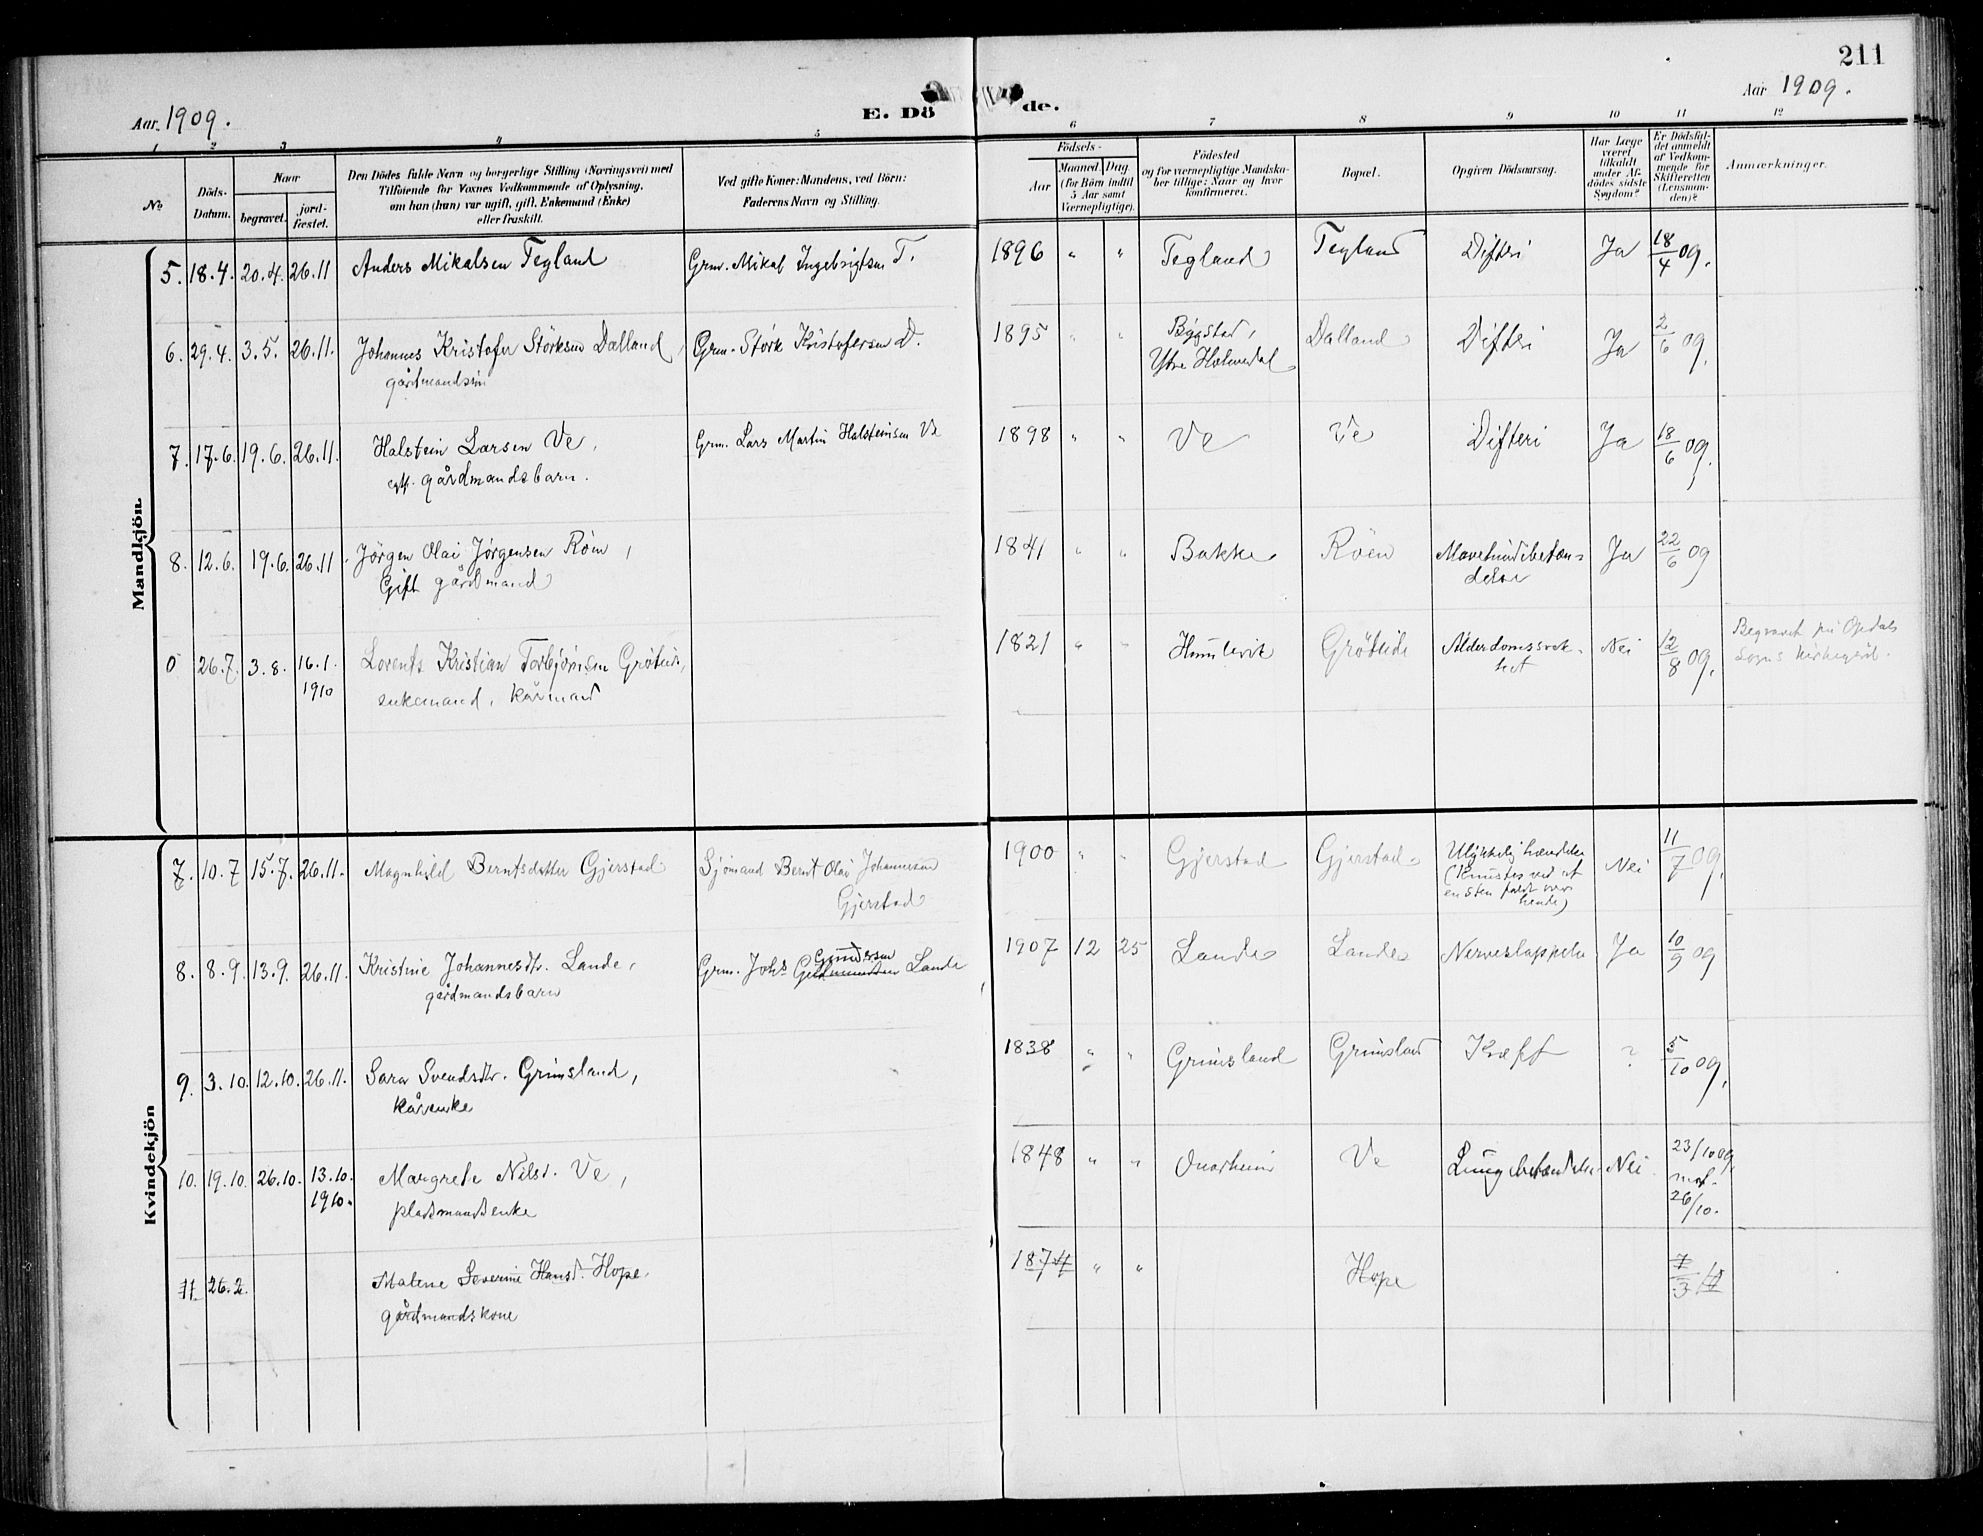 211
Aar 1909.
E. Döde.
Aar 1909.
1 2 3 4 5 6 7 8 9 10 11 12
No
Döds-Datum.
Naar
begravet.
jordfæstet.
Den Dödes fulde Navn og borgerlige Stilling (Næringsvei) med
Tilföiende for Voxnes Vedkommende af Oplysning,
om han (hun) var ugift, gift, Enkemand (Enke)
eller fraskilt.
Ved gifte Koner: Mandens, ved Börn:
Faderens Navn og Stilling.
Födsels-
Aar
Maaned Dag
(for Börn indtil
5 Aar samt
Værnepligtige).
Födested
og for værnepligtige Mandskaber tillige: Naar og hvor
konfirmeret.
Bopæl.
Opgiven Dödsaarsag.
Har Læge
været
tilkaldt
under Afdödes sidste
Sygdom?
Er Dödsfaldet anmeldt
af Vedkommende for
Skifteretten
(Lensmanden)?
Anmærkninger.
Mandkjön.
5. 18.4. 20.4. 26.11 Anders Mikalsen Tegland Grm. Mikal Ingebrigtsen T. 1896 " " Tegland Tegland Difteri Ja 18/4 09.
6. 29.4. 3.5. 26.11. Johannes Kristofer Störksen Dalland, Grm. Störk Kristofersen D. 1895 " " Bygstad, Dalland Difteri Ja 2/6 09.
gårdmandssön Ytre Holmedal
7. 17.6. 19.6. 26.11. Halstein Larsen Ve, Grm. Lars Martin Halsteinsen Ve 1898 " " Ve Ve Difteri Ja 18/6 09.
gårdmandsbarn.
8. 12.6. 19.6. 26.11. Jörgen Olai Jörgensen Röen, 1841 " " Bakke Röen Mavetindibetæn- Ja 22/6 09
Gift gårdmand delse
0 26.7. 3.8. 16.1. Lorents Kristian Torbjörnsen Gröteide, 1821 " " Humlevik Gröteide Alderdomssvak- Nei 12/8 09. Begravet på Opdals
1910 enkemand, kårmand het Sogns kirkegård.
Kvindekjön
7. 10.7 15.7. 26.11. Magnhild Berntsdatter Gjerstad Sjömand Bernt Olai Johannesen 1900 " " Gjerstad Gjerstad Ulykkelig hændelse Nei 11/7 09.
Gjerstad (Knustes ved at
en sten faldt over
hende)
8. 8.9. 13.9. 26.11. Kristine Johannesdtr. Lande, Grm. Johs Gundersen Lande 1907 12 25 Lande Lande Nerveslappelse Ja 10/9 09
gårdmandsbarn
9. 3.10. 12.10. 26.11. Sara Svendsdtr. Grimsland, 1838 " " Grimsland Grimsland Kræft ? 5/10 09.
kårenke
10. 19.10. 26.10. 13.10. Margrete Nilsd. Ve, 1848 " " Onarheim Ve Lungebetændelse Nei. 23/10 09,
1910. pladsmandsenke mot.
26/10.
11. 26.2. Malene Severine Hansd. Hope, 1874 " " Hope 7/3
gårdmandskone